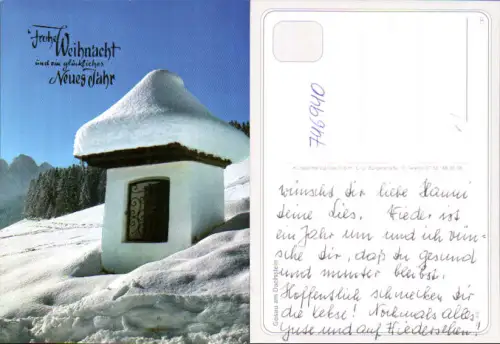 Frohe Weihnacht
und ein glückliches
Neues Jahr
746940
Gosau am Dachstein
wünscht Dir liebe Hanni
Deine Lies. Wieder ist
ein Jahr um und ich wün-
sche Dir, daß Du gesund
und munter bleibst.
Hoffentlich schmecken Dir
die Kekse! Nochmals alles
Gute und auf Wiedersehen!